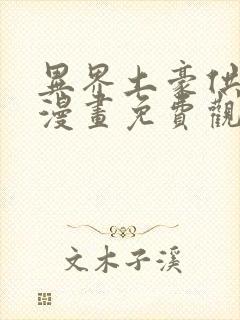 異界土豪供
漫畫免費觀
文木子溪